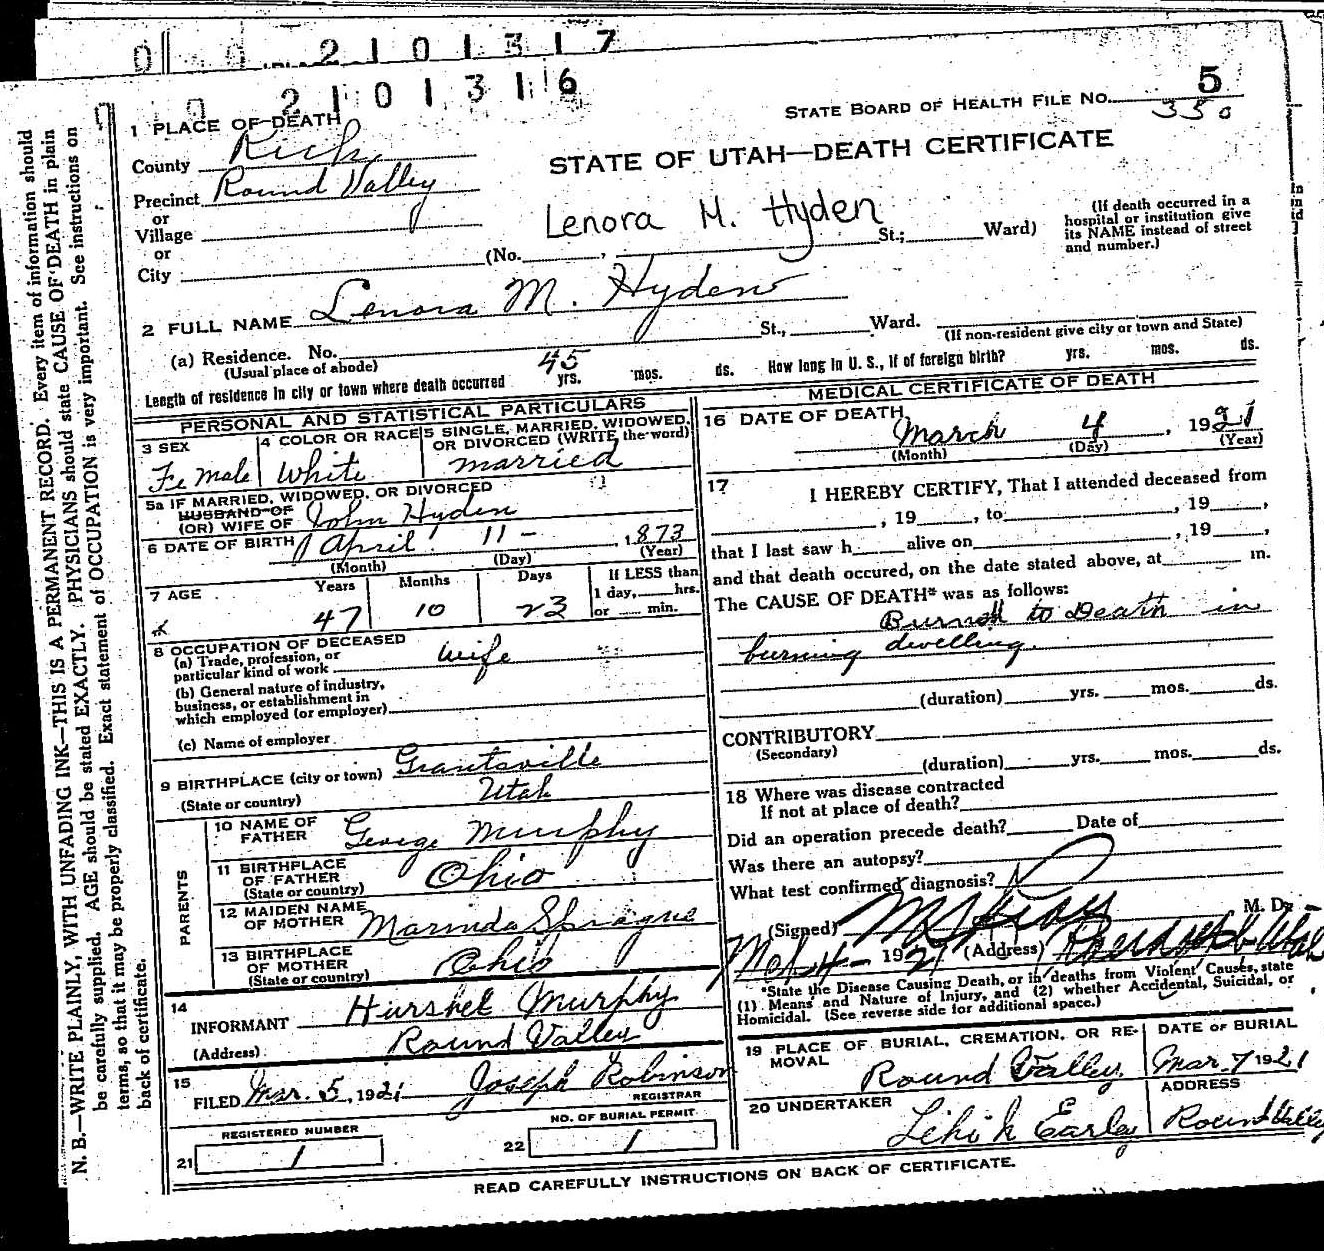 0 0 2101317
0 0 2101316
STATE BOARD OF HEALTH FILE NO. 5
350
1 PLACE OF DEATH
County Rich
STATE OF UTAH—DEATH CERTIFICATE
Precinct Round Valley
or
Village
or
City
(No. , St.; Ward)
Lenora M. Hyden
(If death occurred in a hospital or institution give its NAME instead of street and number.)
2 FULL NAME Lenora M. Hyden
(a) Residence. No. St., Ward.
(Usual place of abode)
(If non-resident give city or town and State)
Length of residence in city or town where death occurred 45 yrs. mos. ds. How long in U. S., if of foreign birth? yrs. mos. ds.
PERSONAL AND STATISTICAL PARTICULARS
3 SEX
Female
4 COLOR OR RACE
White
5 SINGLE, MARRIED, WIDOWED, OR DIVORCED (WRITE the word)
married
5a IF MARRIED, WIDOWED, OR DIVORCED
HUSBAND OF
(OR) WIFE OF John Hyden
6 DATE OF BIRTH April 11 - , 1873
(Month) (Day) (Year)
7 AGE
Years Months Days If LESS than
1 day, hrs.
or min.
47 10 23
8 OCCUPATION OF DECEASED
(a) Trade, profession, or
particular kind of work wife
(b) General nature of industry,
business, or establishment in
which employed (or employer)
(c) Name of employer
9 BIRTHPLACE (city or town) Grantsville
(State or country) Utah
PARENTS
10 NAME OF FATHER George Murphy
11 BIRTHPLACE OF FATHER (State or country) Ohio
12 MAIDEN NAME OF MOTHER Marinda Sprague
13 BIRTHPLACE OF MOTHER (State or country) Ohio
14
INFORMANT Hurshel Murphy
(Address) Round Valley
15
FILED Mar. 5, 1921 Joseph Robinson
REGISTRAR
REGISTERED NUMBER
21 1
NO. OF BURIAL PERMIT
22 1
MEDICAL CERTIFICATE OF DEATH
16 DATE OF DEATH
March 4 , 1921
(Month) (Day) (Year)
17 I HEREBY CERTIFY, That I attended deceased from
, 19 , to , 19 ,
that I last saw h alive on , 19 ,
and that death occured, on the date stated above, at m.
The CAUSE OF DEATH* was as follows:
Burned to Death in
burning dwelling.
(duration) yrs. mos. ds.
CONTRIBUTORY
(Secondary)
(duration) yrs. mos. ds.
18 Where was disease contracted
If not at place of death?
Did an operation precede death? Date of
Was there an autopsy?
What test confirmed diagnosis?
(Signed) M. D.
Mch 4 - 1921 (Address) Randolph Utah
*State the Disease Causing Death, or in deaths from Violent Causes, state
(1) Means and Nature of Injury, and (2) whether Accidental, Suicidal, or
Homicidal. (See reverse side for additional space.)
19 PLACE OF BURIAL, CREMATION, OR REMOVAL
Round Valley
DATE OF BURIAL
Mar. 7 1921
20 UNDERTAKER
Earley
ADDRESS
Round Valley
READ CAREFULLY INSTRUCTIONS ON BACK OF CERTIFICATE.
N. B.—WRITE PLAINLY, WITH UNFADING INK—THIS IS A PERMANENT RECORD. Every item of information should
be carefully supplied. AGE should be stated EXACTLY. PHYSICIANS should state CAUSE OF DEATH in plain
terms, so that it may be properly classified. Exact statement of OCCUPATION is very important. See instructions on
back of certificate.